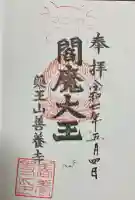 奉拝
令和七年五月四日
閻魔大王
醫王山善養寺